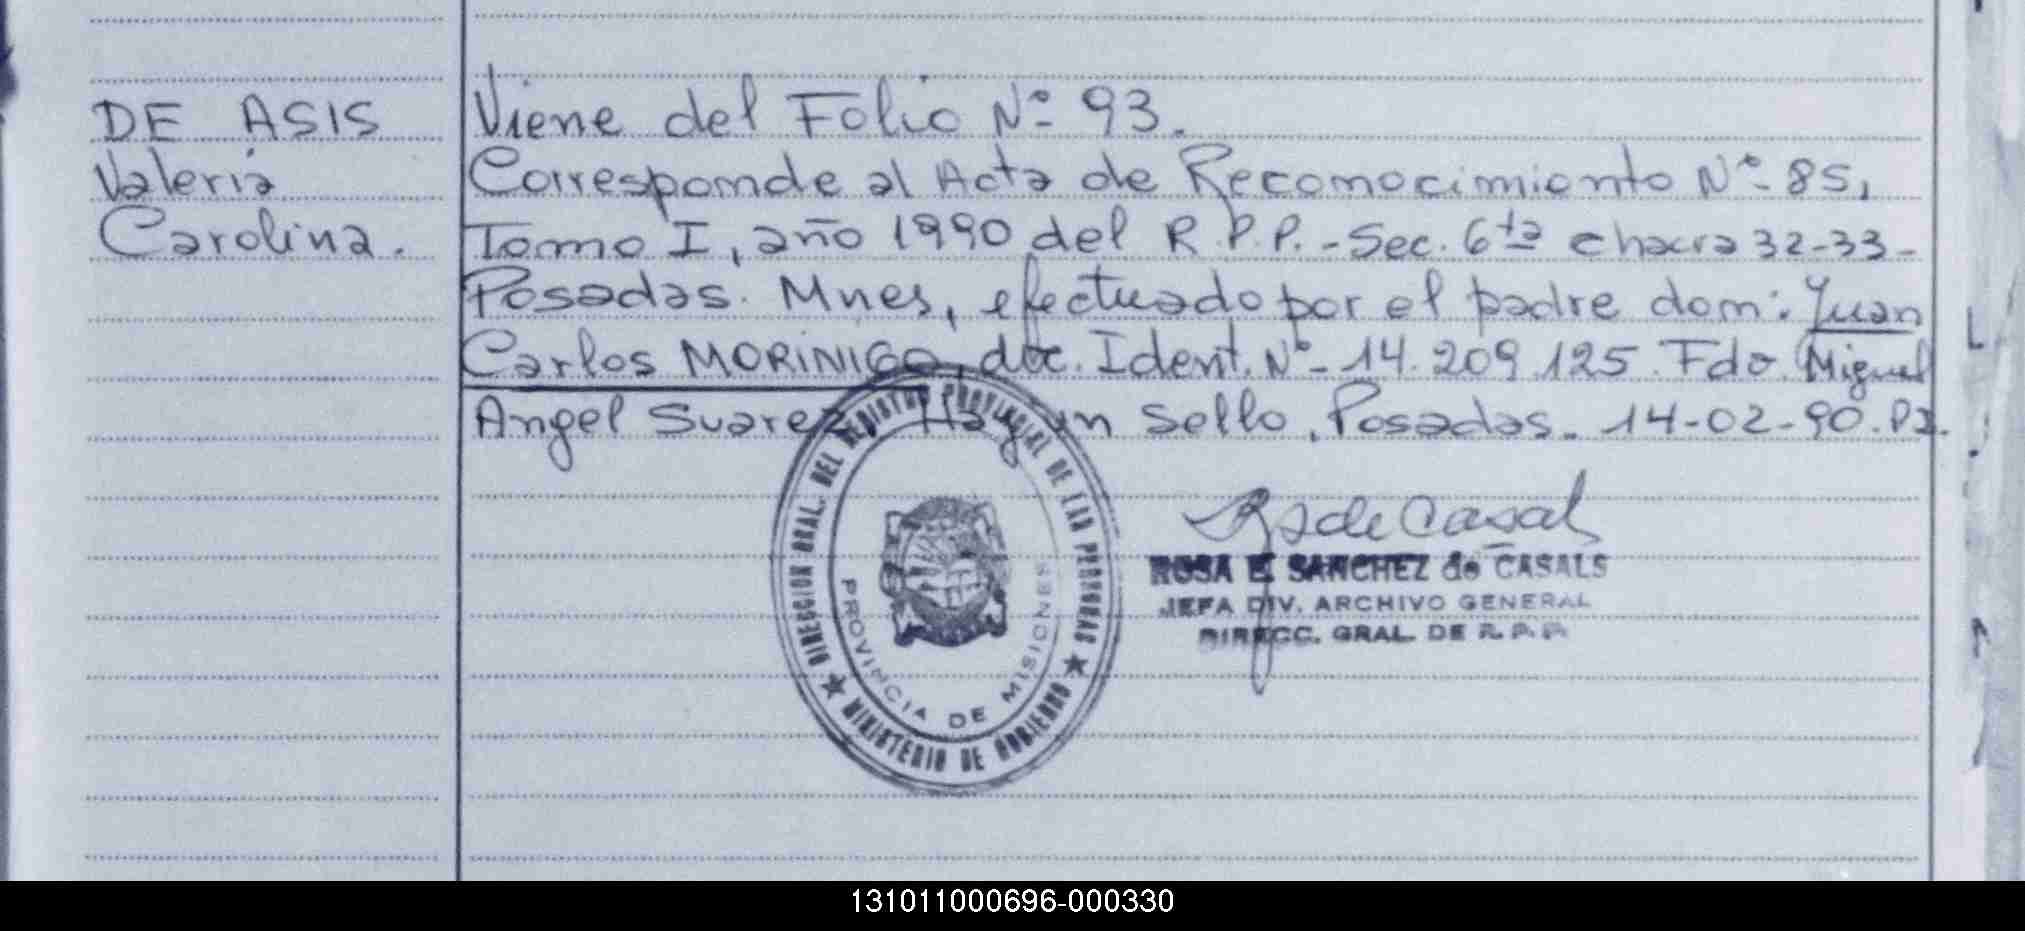 DE ASIS
Valeria
Carolina.
Viene del Folio Nº 93.
Corresponde al Acta de Reconocimiento Nº- 85,
Tomo I, año 1990 del R.P.P.-Sec. 6ta chacra 32-33-
Posadas. Mnes, efectuado por el padre dom: Juan
Carlos MORINIGO, doc. Ident. Nº- 14.209.125. Fdo. Miguel
Angel Suarez. Hay un sello. Posadas. 14-02-90.
DIRECCION GRAL. DEL REGISTRO PROVINCIAL DE LAS PERSONAS
PROVINCIA DE MISIONES
★ MINISTERIO DE GOBIERNO ★
R S de Casals
ROSA E. SANCHEZ de CASALS
JEFA DIV. ARCHIVO GENERAL
DIRECC. GRAL. DE R. P. P.
131011000696-000330